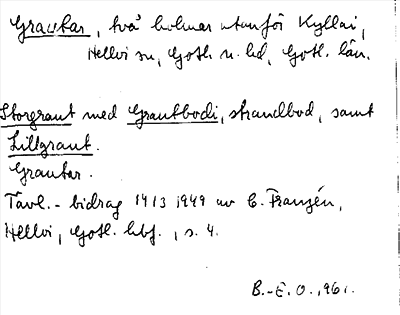 Grautar, två holmar utanför Kyllai,
Hellvi sn, Gotl. n. hd, Gotl. län.
Storgraut med Grautbodi, strandbod, samt
Lillgraut.
Grautar.
Tävl.-bidrag 14/3 1949 av C. Franzén,
Hellvi, Gotl. hbf., s. 4.
B.-E. O., 1961.